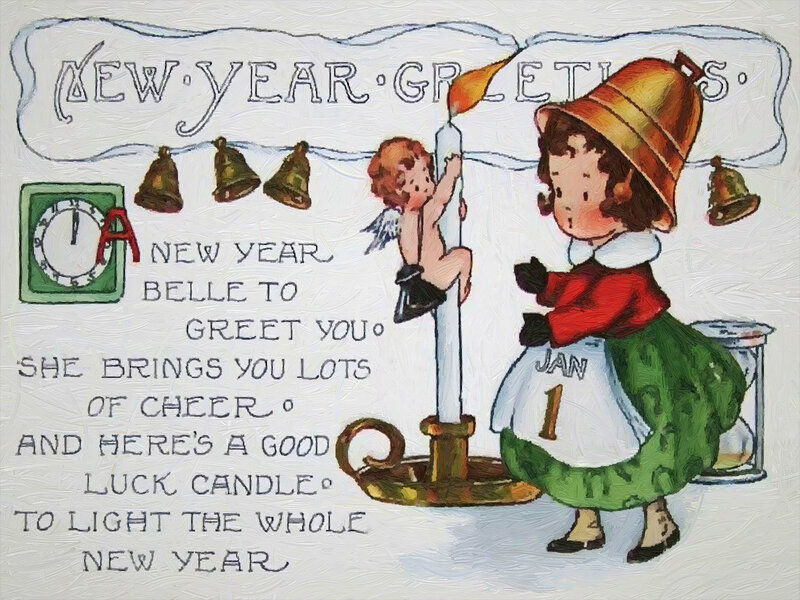 NEW · YEAR · GREETINGS ·
A NEW YEAR
BELLE TO
GREET YOU
SHE BRINGS YOU LOTS
OF CHEER
AND HERE'S A GOOD
LUCK CANDLE
TO LIGHT THE WHOLE
NEW YEAR
JAN
1